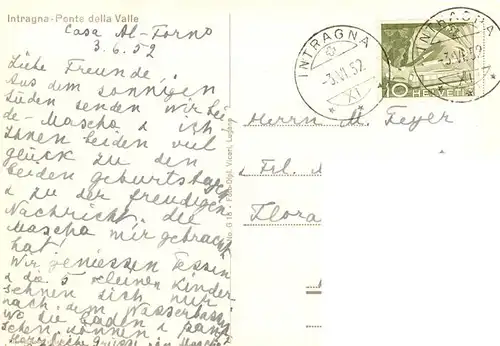 Intragna-Ponte della Valle
Casa Al-Forno
3.6.52
Liebe Freunde
Aus dem sonnigen
Süden senden wir bei
de-Mascha & ich
Ihnen beiden viel
glück zu den
beiden geburtstagen
& zu der freudigen
Nachricht, die
Mascha mir gebracht
hat!
Wir geniessen Tessin
& die 5 kleinen Kinder
sehnen sich nur
nach dem Wasserbassin
wo die baden & pant
schen können &
Herzliche Grüsse
INTRAGNA
-3.VI.52
XI
INTRAGNA
XI
10 HELVETIA
Herrn M. Feyer
Frl. M
Flora